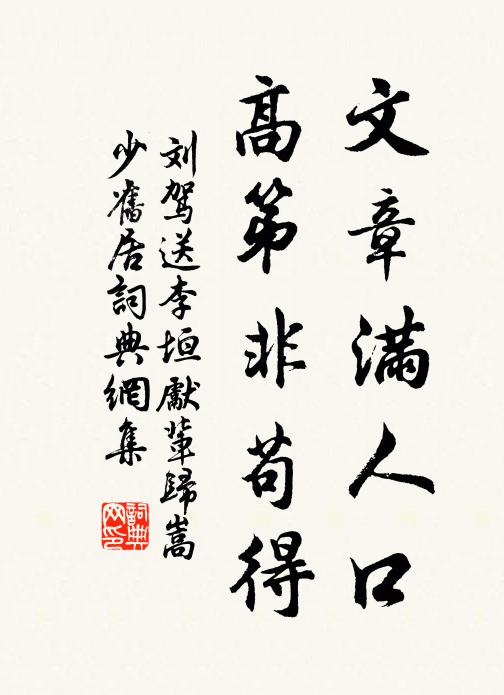 文章滿人口
高第非苟得
刘駕送李垣獻輩歸嵩
少舊居詞典網集
詞典網印